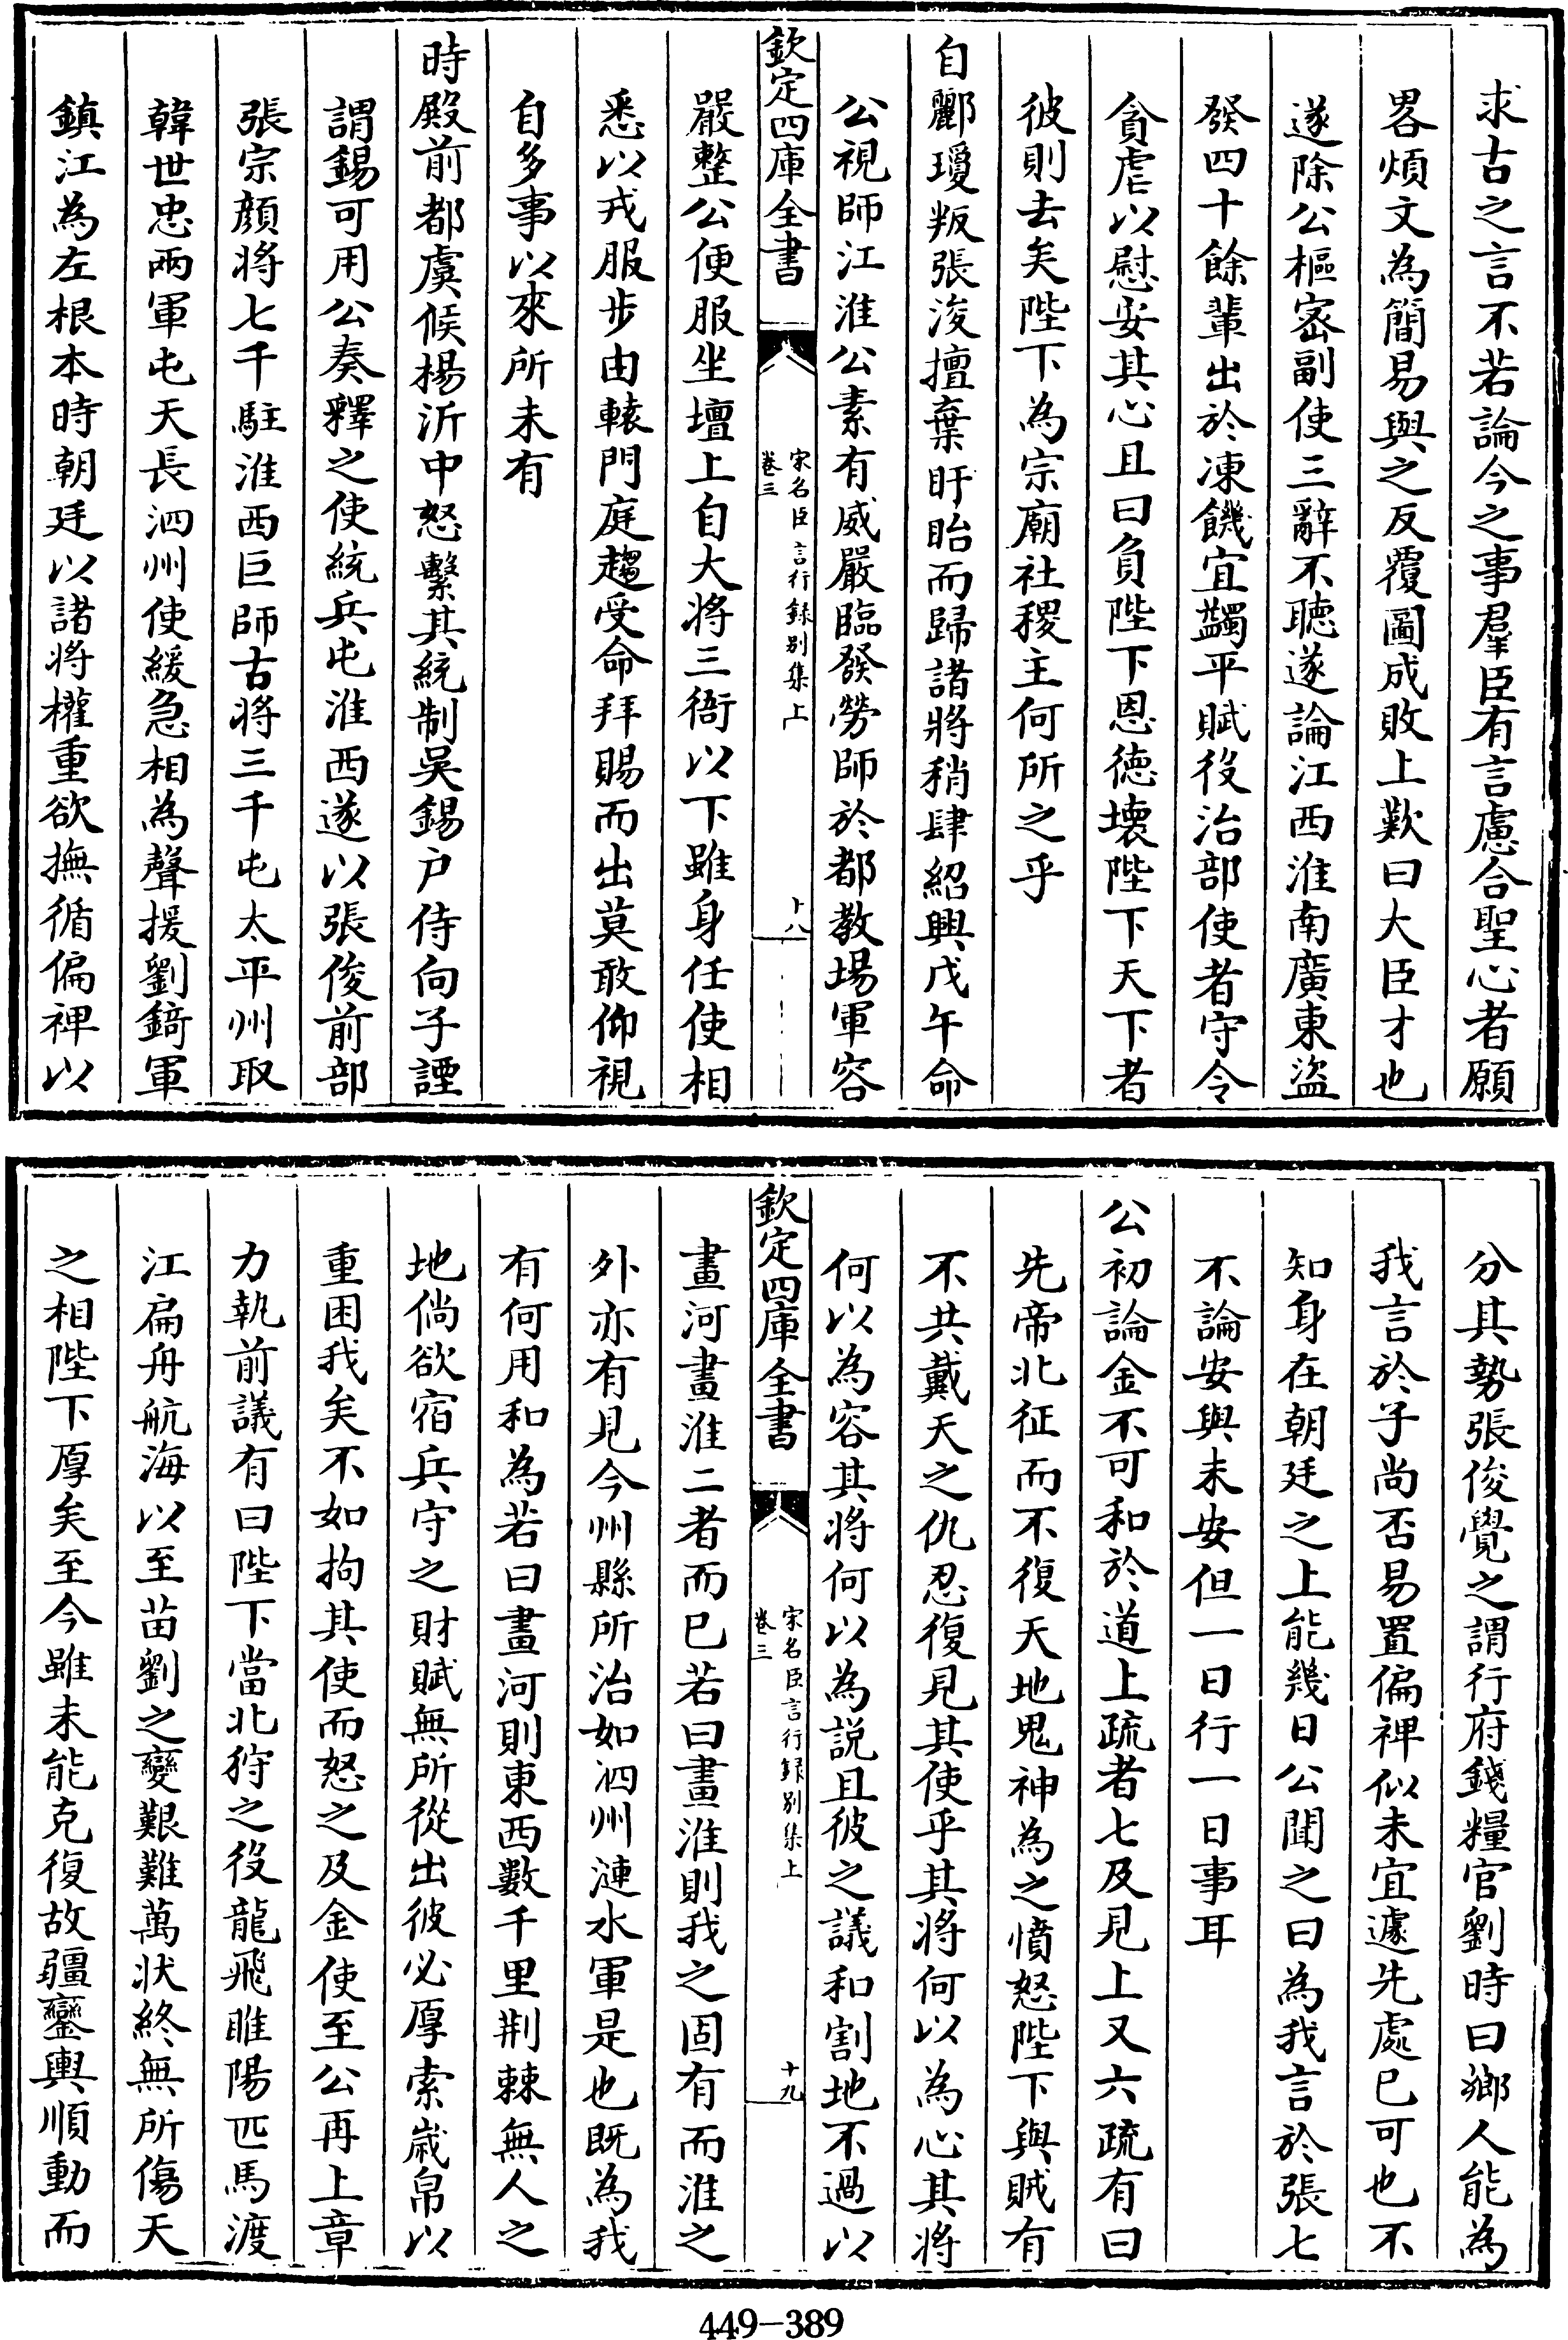 求古之言不若論今之事羣臣有言慮合聖心者願
畧煩文為簡易與之反覆圖成敗上歎曰大臣才也
遂除公樞宻副使三辭不聽遂論江西淮南廣東盜
發四十餘輩出於凍餓宜蠲平賦役治部使者守令
貪虐以慰安其心且曰負陛下恩德壞陛下天下者
彼則去矣陛下為宗廟社稷主何所之乎
自酈瓊叛張浚擅棄盱眙而歸諸將稍肆紹興戊午命
公視師江淮公素有威嚴臨發勞師於都教場軍容
欽定四庫全書
宋名臣言行録别集上
卷三
十八
嚴整公便服坐壇上自大將三衙以下雖身任使相
悉以戎服步由轅門庭趨受命拜賜而出莫敢仰視
自多事以來所未有
時殿前都虞候楊沂中怒繫其統制吳錫户侍向子諲
謂錫可用公奏釋之使統兵屯淮西遂以張俊前部
張宗顔將七千駐淮西巨師古將三千屯太平州取
韓世忠兩軍屯天長泗州使緩急相為聲援劉錡軍
鎮江為左根本時朝廷以諸將權重欲撫循偏裨以
分其勢張俊覺之謂行府錢糧官劉時曰鄉人能為
我言於子尚否易置偏裨似未宜遽先處已可也不
知身在朝廷之上能幾日公聞之曰為我言於張七
不論安與未安但一日行一日事耳
公初論金不可和於道上疏者七及見上又六疏有曰
先帝北征而不復天地鬼神為之憤怒陛下與賊有
不共戴天之仇忍復見其使乎其將何以為心其將
何以為容其將何以為説且彼之議和割地不過以
欽定四庫全書
宋名臣言行録别集上
卷三
十九
畫河畫淮二者而已若曰畫淮則我之固有而淮之
外亦有見今州縣所治如泗州漣水軍是也既為我
有何用和為若曰畫河則東西數千里荆棘無人之
地倘欲宿兵守之財賦無所從出彼必厚索歲帛以
重困我矣不如拘其使而怒之及金使至公再上章
力執前議有曰陛下當北狩之役龍飛睢陽匹馬渡
江扁舟航海以至苗劉之變艱難萬狀終無所傷天
之相陛下厚矣至今雖未能克復故疆鑾輿順動而
449-389